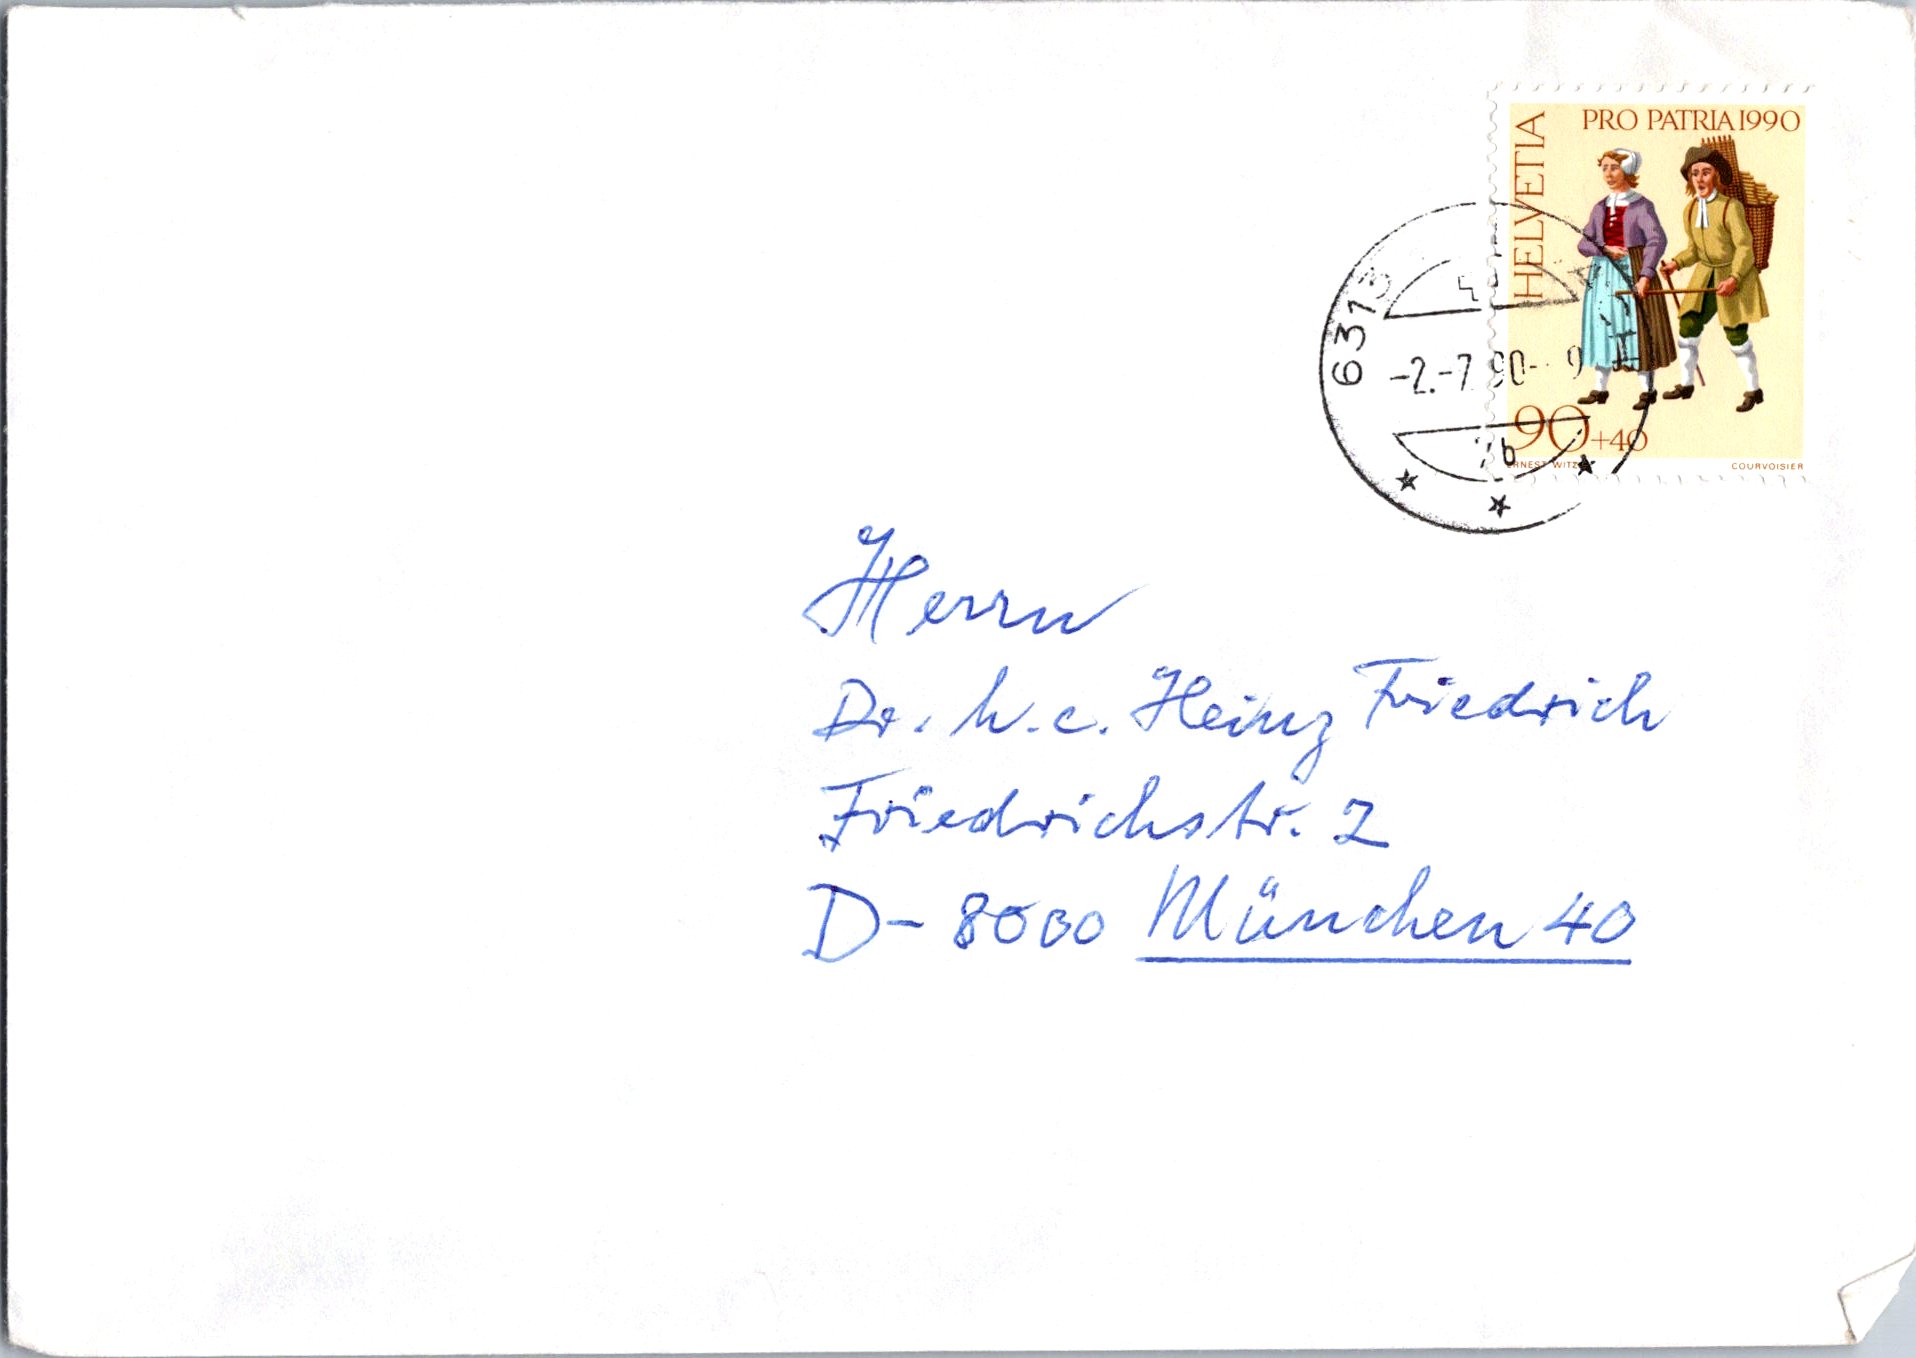 PRO PATRIA 1990
HELVETIA
6313
-2.-7.90- 9
90+40
COURVOISIER
Herrn
Dr. h.c. Heinz Friedrich
Friedrichstr. 2
D- 8000 München 40